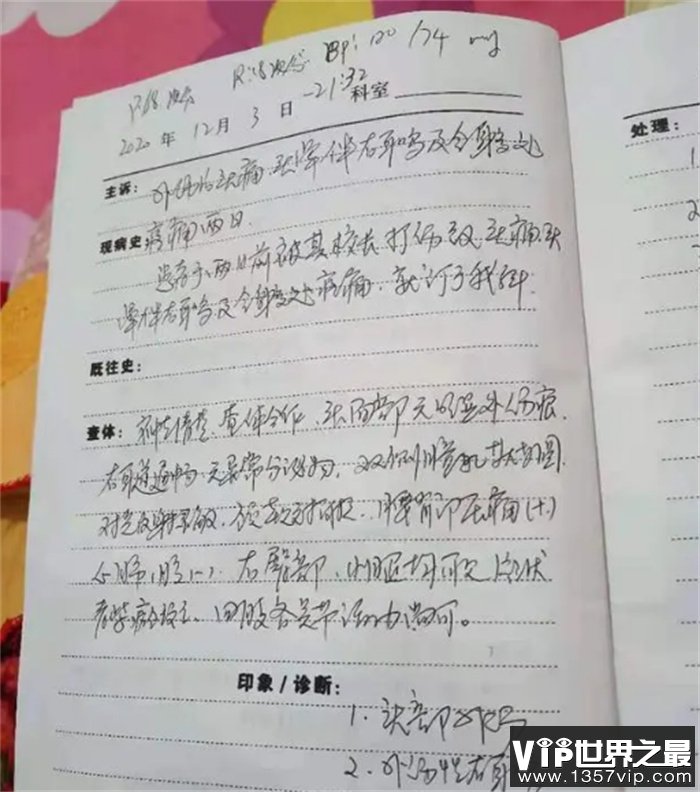 P:68次/分 R:18次/分 BP:120/74 mmHg
2020年12月3日 -21:32 科室
主诉: 外伤后头痛、头晕伴右耳鸣及全身多处
疼痛两日.
现病史
患者于两日前被其校长打伤致头痛、头
晕伴右耳鸣及全身多处疼痛,就诊于我科.
既往史:
查体: 神志清楚,查体合作,头面部无明显外伤痕.
右耳道通畅,无异常分泌物,双侧瞳孔等大等圆.
对光反射灵敏,颈软无抵抗,腰背部压痛(+)
心肺腹(-). 右臀部、可见片状
四肢各关节活动尚可。
印象/诊断:
1. 头部外伤
2. 外伤性右耳
处理:
1
2
VIP世界之最
www.1357vip.com